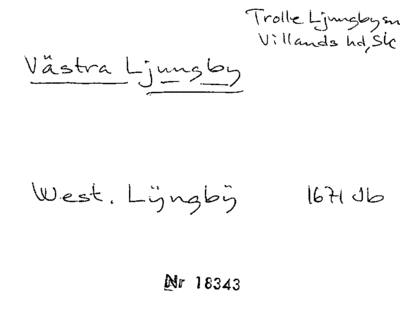 Trolle Ljungby sn
Villands hd, Sk
Västra Ljungby
West. Lÿngbÿ 1671 Jb
Nr 18343